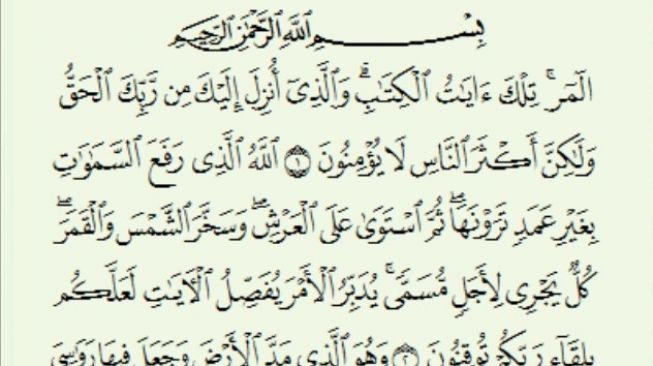 بِسْمِ اللَّهِ الرَّحْمَٰنِ الرَّحِيمِ
الٓمٓرۚ تِلْكَ ءَايَٰتُ الْكِتَٰبِۗ وَالَّذِىٓ أُنزِلَ إِلَيْكَ مِن رَّبِّكَ الْحَقُّ
وَلَٰكِنَّ أَكْثَرَ النَّاسِ لَا يُؤْمِنُونَ ١ اللَّهُ الَّذِى رَفَعَ السَّمَٰوَٰتِ
بِغَيْرِ عَمَدٍ تَرَوْنَهَاۖ ثُمَّ اسْتَوَىٰ عَلَى الْعَرْشِۖ وَسَخَّرَ الشَّمْسَ وَالْقَمَرَۖ
كُلٌّ يَجْرِى لِأَجَلٍ مُّسَمًّىۚ يُدَبِّرُ الْأَمْرَ يُفَصِّلُ الْءَايَٰتِ لَعَلَّكُم
بِلِقَآءِ رَبِّكُمْ تُوقِنُونَ ٢ وَهُوَ الَّذِى مَدَّ الْأَرْضَ وَجَعَلَ فِيهَا رَوَٰسِىَ